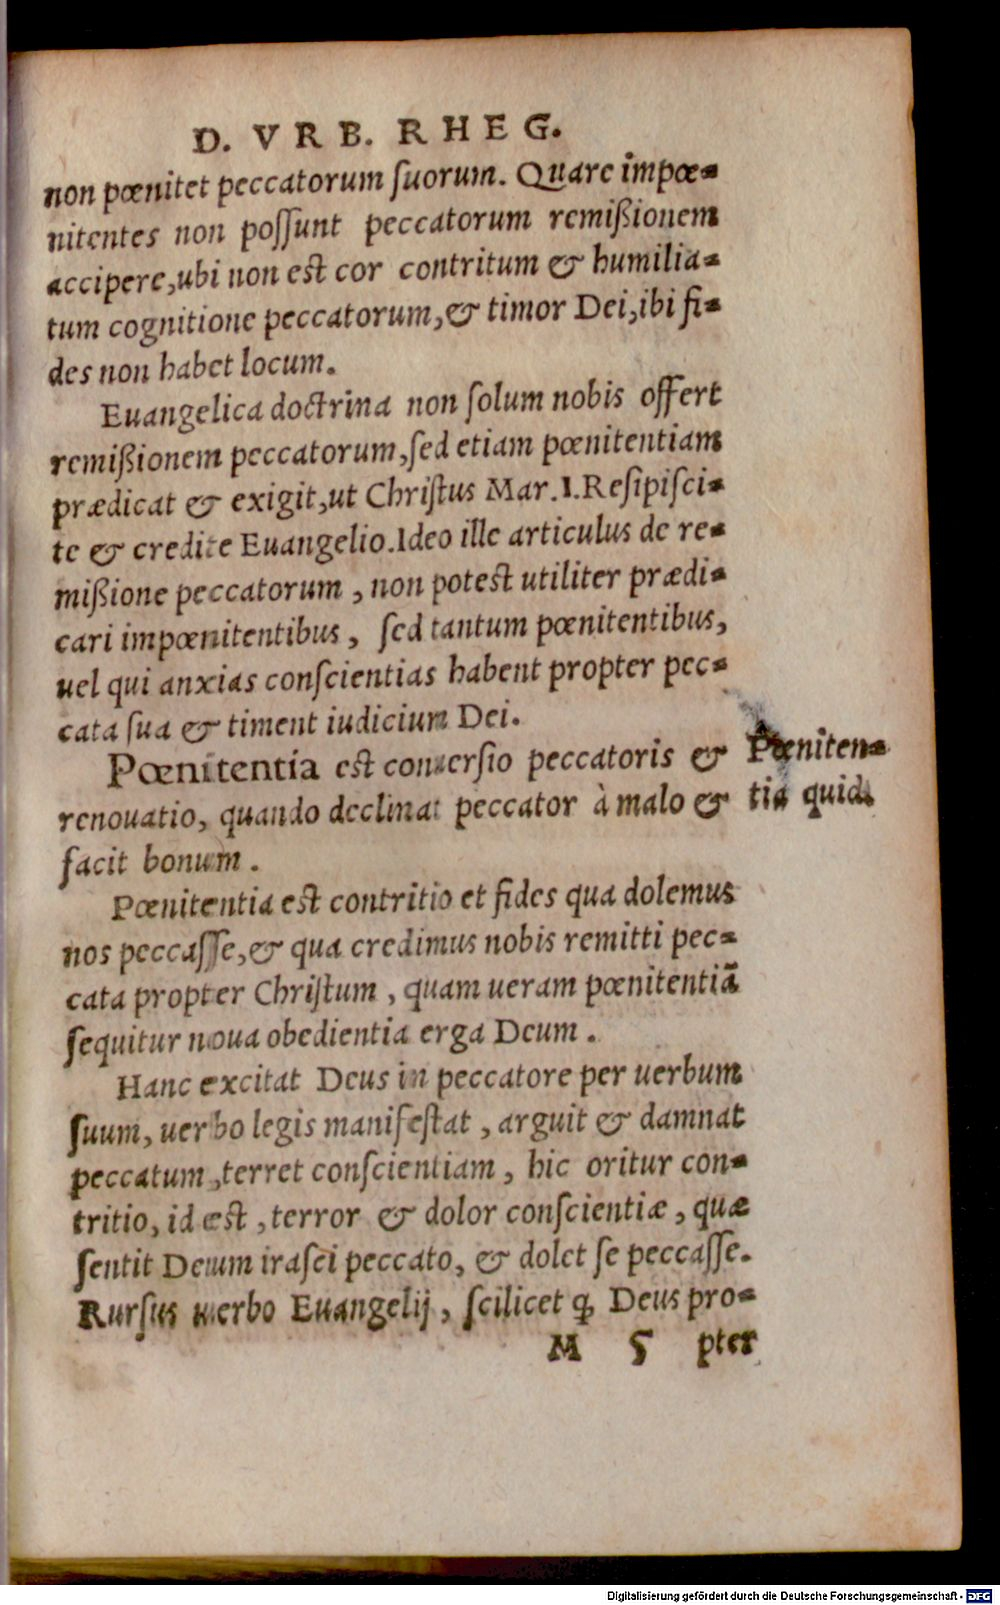 D. VRB. RHEG.
non pœnitet peccatorum ſuorum. Quare impœ-
nitentes non poſſunt peccatorum remißionem
accipere, ubi non est cor contritum & humilia-
tum cognitione peccatorum, & timor Dei, ibi fi-
des non habet locum.
Euangelica doctrina non ſolum nobis offert
remißionem peccatorum, ſed etiam pœnitentiam
prædicat & exigit, ut Chriſtus Mar. 1. Reſipiſci-
te & credite Euangelio. Ideo ille articulus de re-
mißione peccatorum, non potest utiliter prædi-
cari impœnitentibus, ſed tantum pœnitentibus,
uel qui anxias conſcientias habent propter pec-
cata ſua & timent iudicium Dei.
Pœnitentia est conuerſio peccatoris & Pœniten-
renouatio, quando declinat peccator à malo & tia quid.
facit bonum.
Pœnitentia est contritio et fides qua dolemus
nos peccaſſe, & qua credimus nobis remitti pec-
cata propter Chriſtum, quam ueram pœnitentiã
ſequitur noua obedientia erga Deum.
Hanc excitat Deus in peccatore per uerbum
ſuum, uerbo legis manifeſtat, arguit & damnat
peccatum, terret conſcientiam, hic oritur con-
tritio, id est, terror & dolor conſcientiæ, quæ
ſentit Deum iraſci peccato, & dolet ſe peccaſſe.
Rurſus uerbo Euangelij, ſcilicet ꝙ Deus pro-
M 5 pter
Digitalisierung gefördert durch die Deutsche Forschungsgemeinschaft - DFG